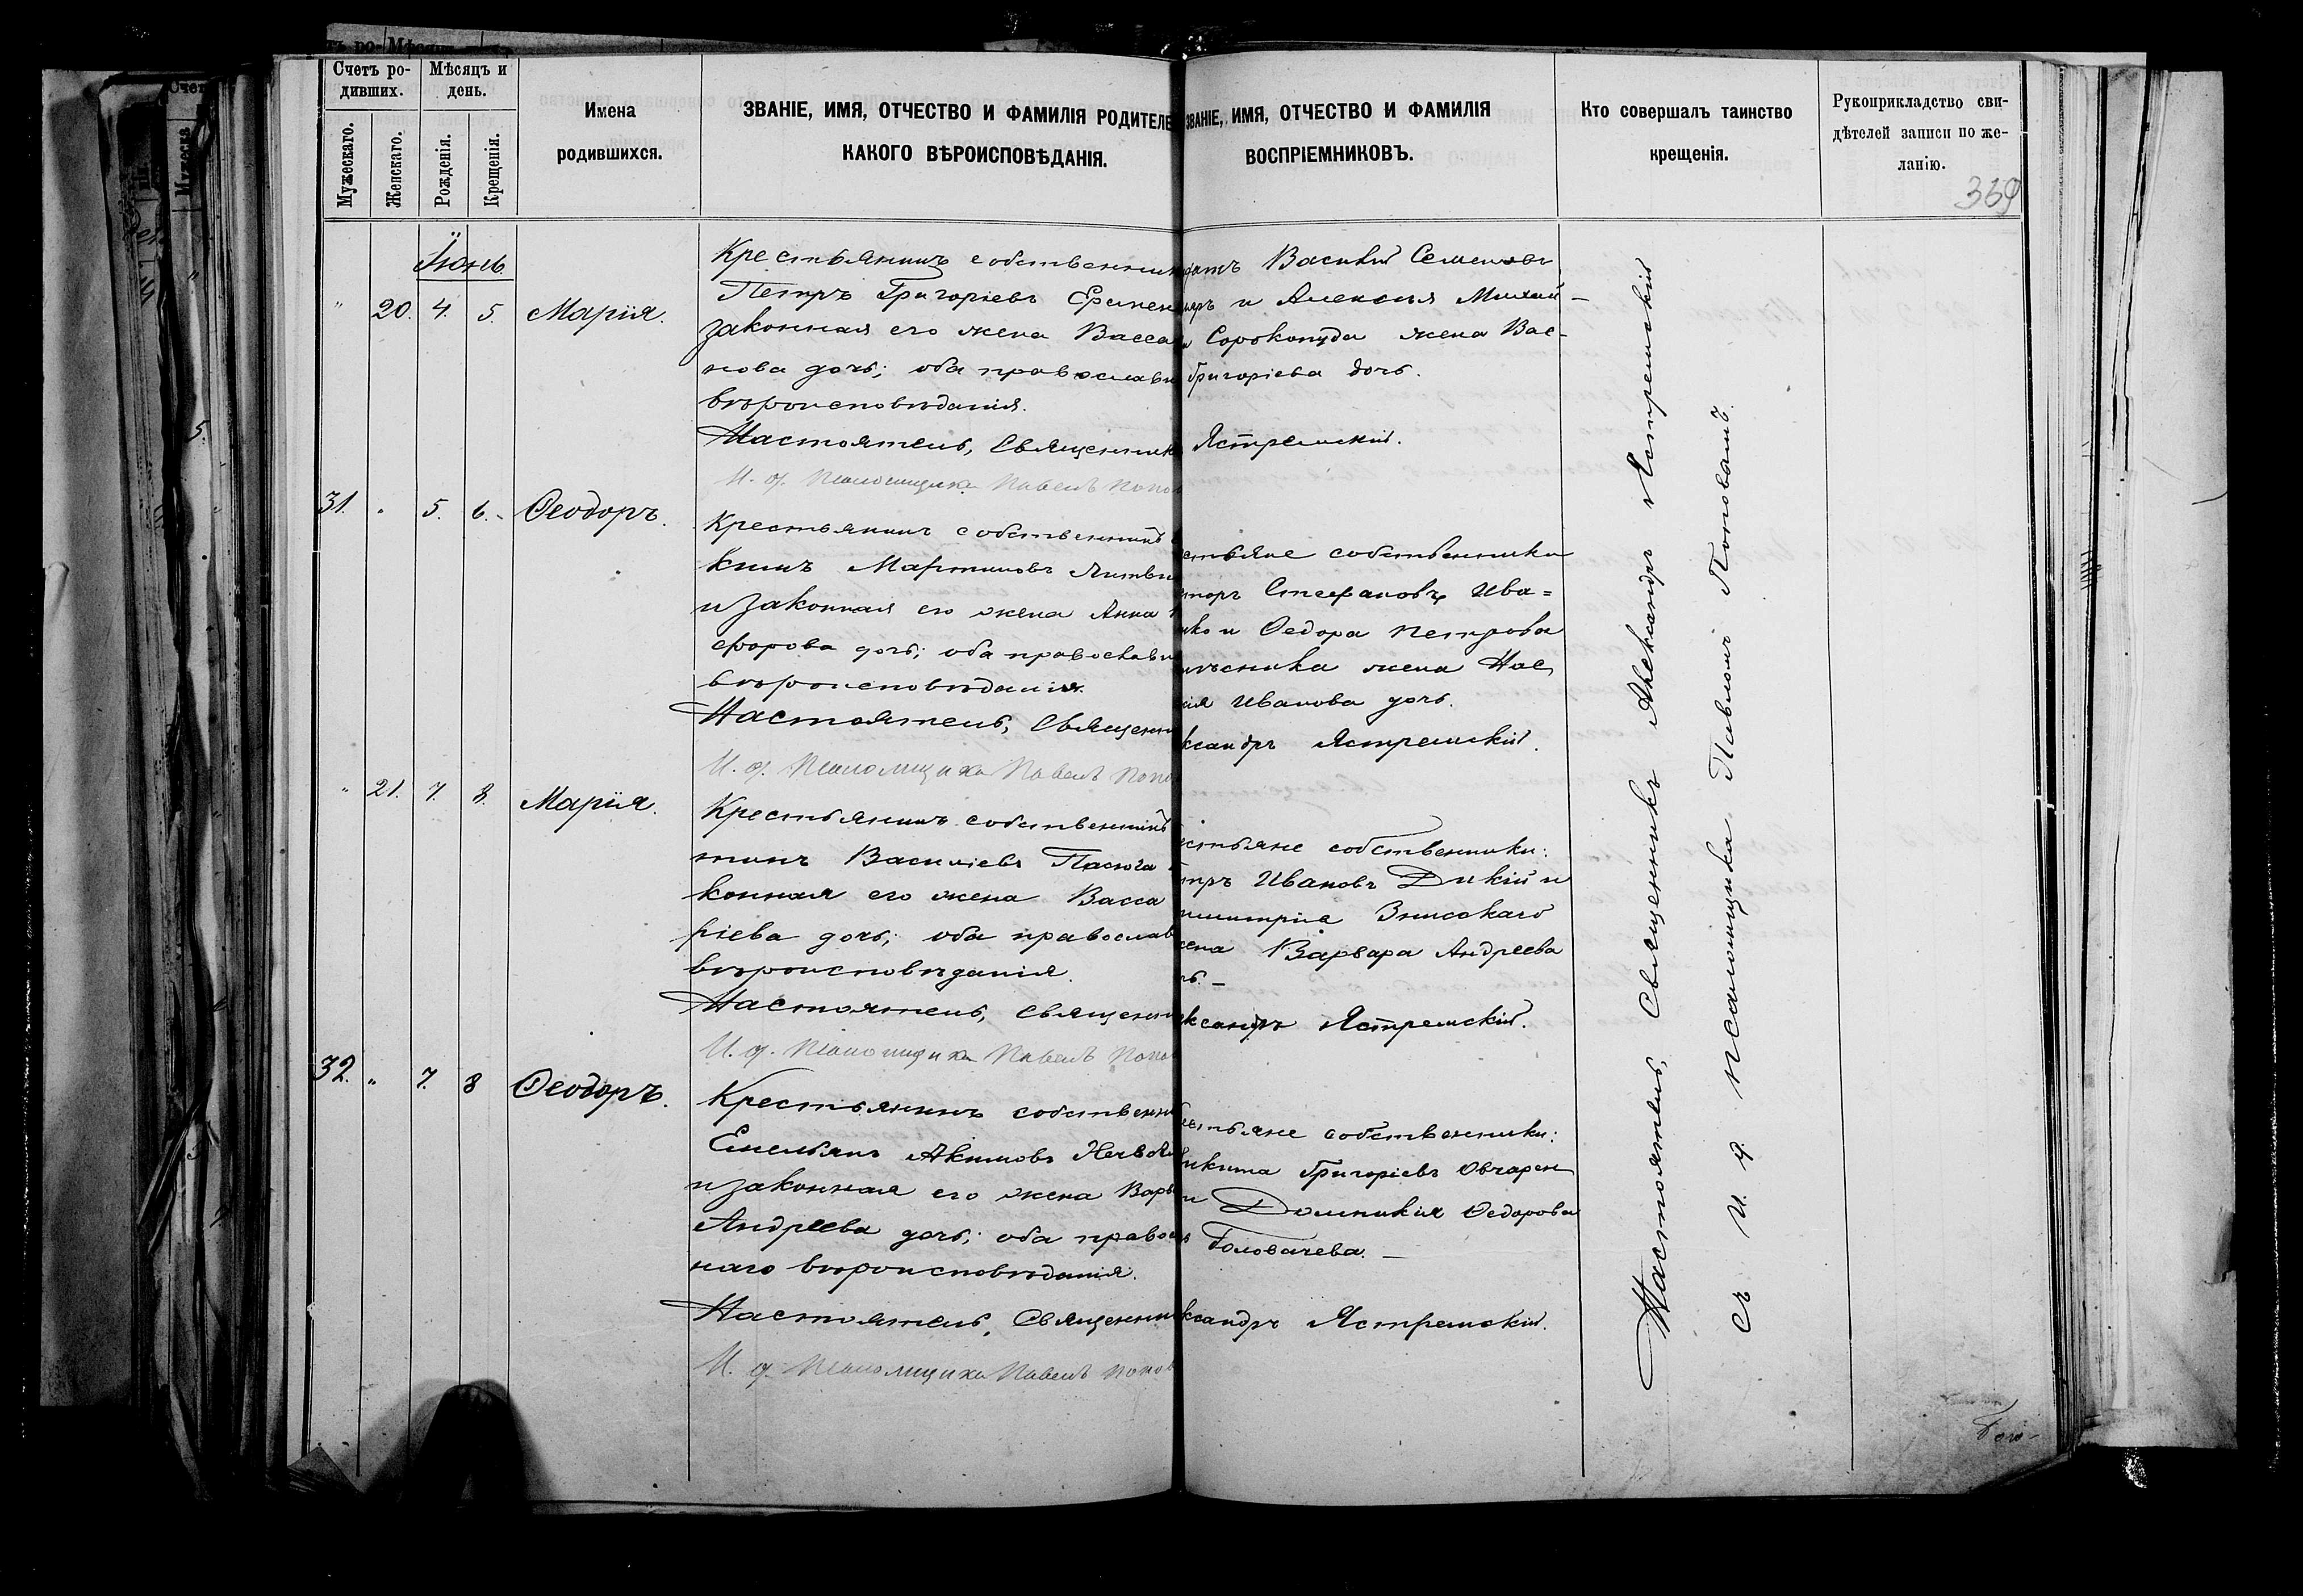 Счетъ ро-
дивших.
Мѣсяцъ и
день.
Мужескаго.
Женскаго.
Рожденія.
Крещенія.
Имена
родившихся.
ЗВАНІЕ, ИМЯ, ОТЧЕСТВО И ФАМИЛІЯ РОДИТЕЛЕ
КАКОГО ВѢРОИСПОВѢДАНІЯ.
ЗВАНІЕ, ИМЯ, ОТЧЕСТВО И ФАМИЛІЯ
ВОСПРІЕМНИКОВЪ.
Кто совершалъ таинство
крещенія.
Рукоприкладство сви-
дѣтелей записи по же-
ланію.
369
Іюнь
" 20. 4. 5. Марія.
Крестьянинъ собственник
Петръ Григоріевъ
законная его жена Васса
нова дочь; оба православн
вѣроисповѣданія.
Настоятель, Священник
И. д. Псаломщика Павелъ Попов
Василій Семеновъ
и Алексія Михай-
Сорокопуда жена Вас-
Григоріева дочь.
Ястремскій.
31. " 5. 6. Ѳеодоръ.
Крестьянинъ собственникъ
кимъ Мартиновъ Литви
и законная его жена Анна
форова дочь; оба православн
вѣроисповѣданія.
Настоятель, Священни
И. д. Псаломщика Павелъ Попо
стьяне собственники
Стефановъ Ива=
нко и Ѳедора Петрова
жена Нас
ія Иванова дочь.
ксандръ Ястремскій.
" 21. 7. 8. Марія.
Крестьянинъ собственникъ
тинъ Василіевъ Пасюга
конная его жена Васса
ріева дочь; оба православ
вѣроисповѣданія.
Настоятель, Священн
И. д. Псаломщика Павелъ Попо
естьяне собственники:
тръ Ивановъ Дикій и
имитрія
ена Варвара Андреева
чь. —
ксандръ Ястремскій.
32. " 7. 8 Ѳеодоръ.
Крестьянинъ собственн
Емельянъ Акимовъ
и законная его жена Варв
Андреева дочь; оба правос
наго вѣроисповѣданія.
Настоятель, Священни
И. д. Псаломщика Павелъ Попов
естьяне собственники:
икита Григоріевъ Овчарен
и Домникія Ѳедорова
Головачева. —
ксандръ Ястремскій.
Настоятель, Священникъ Александръ Ястремскій
съ И. д. псаломщика Павломъ Поповымъ.